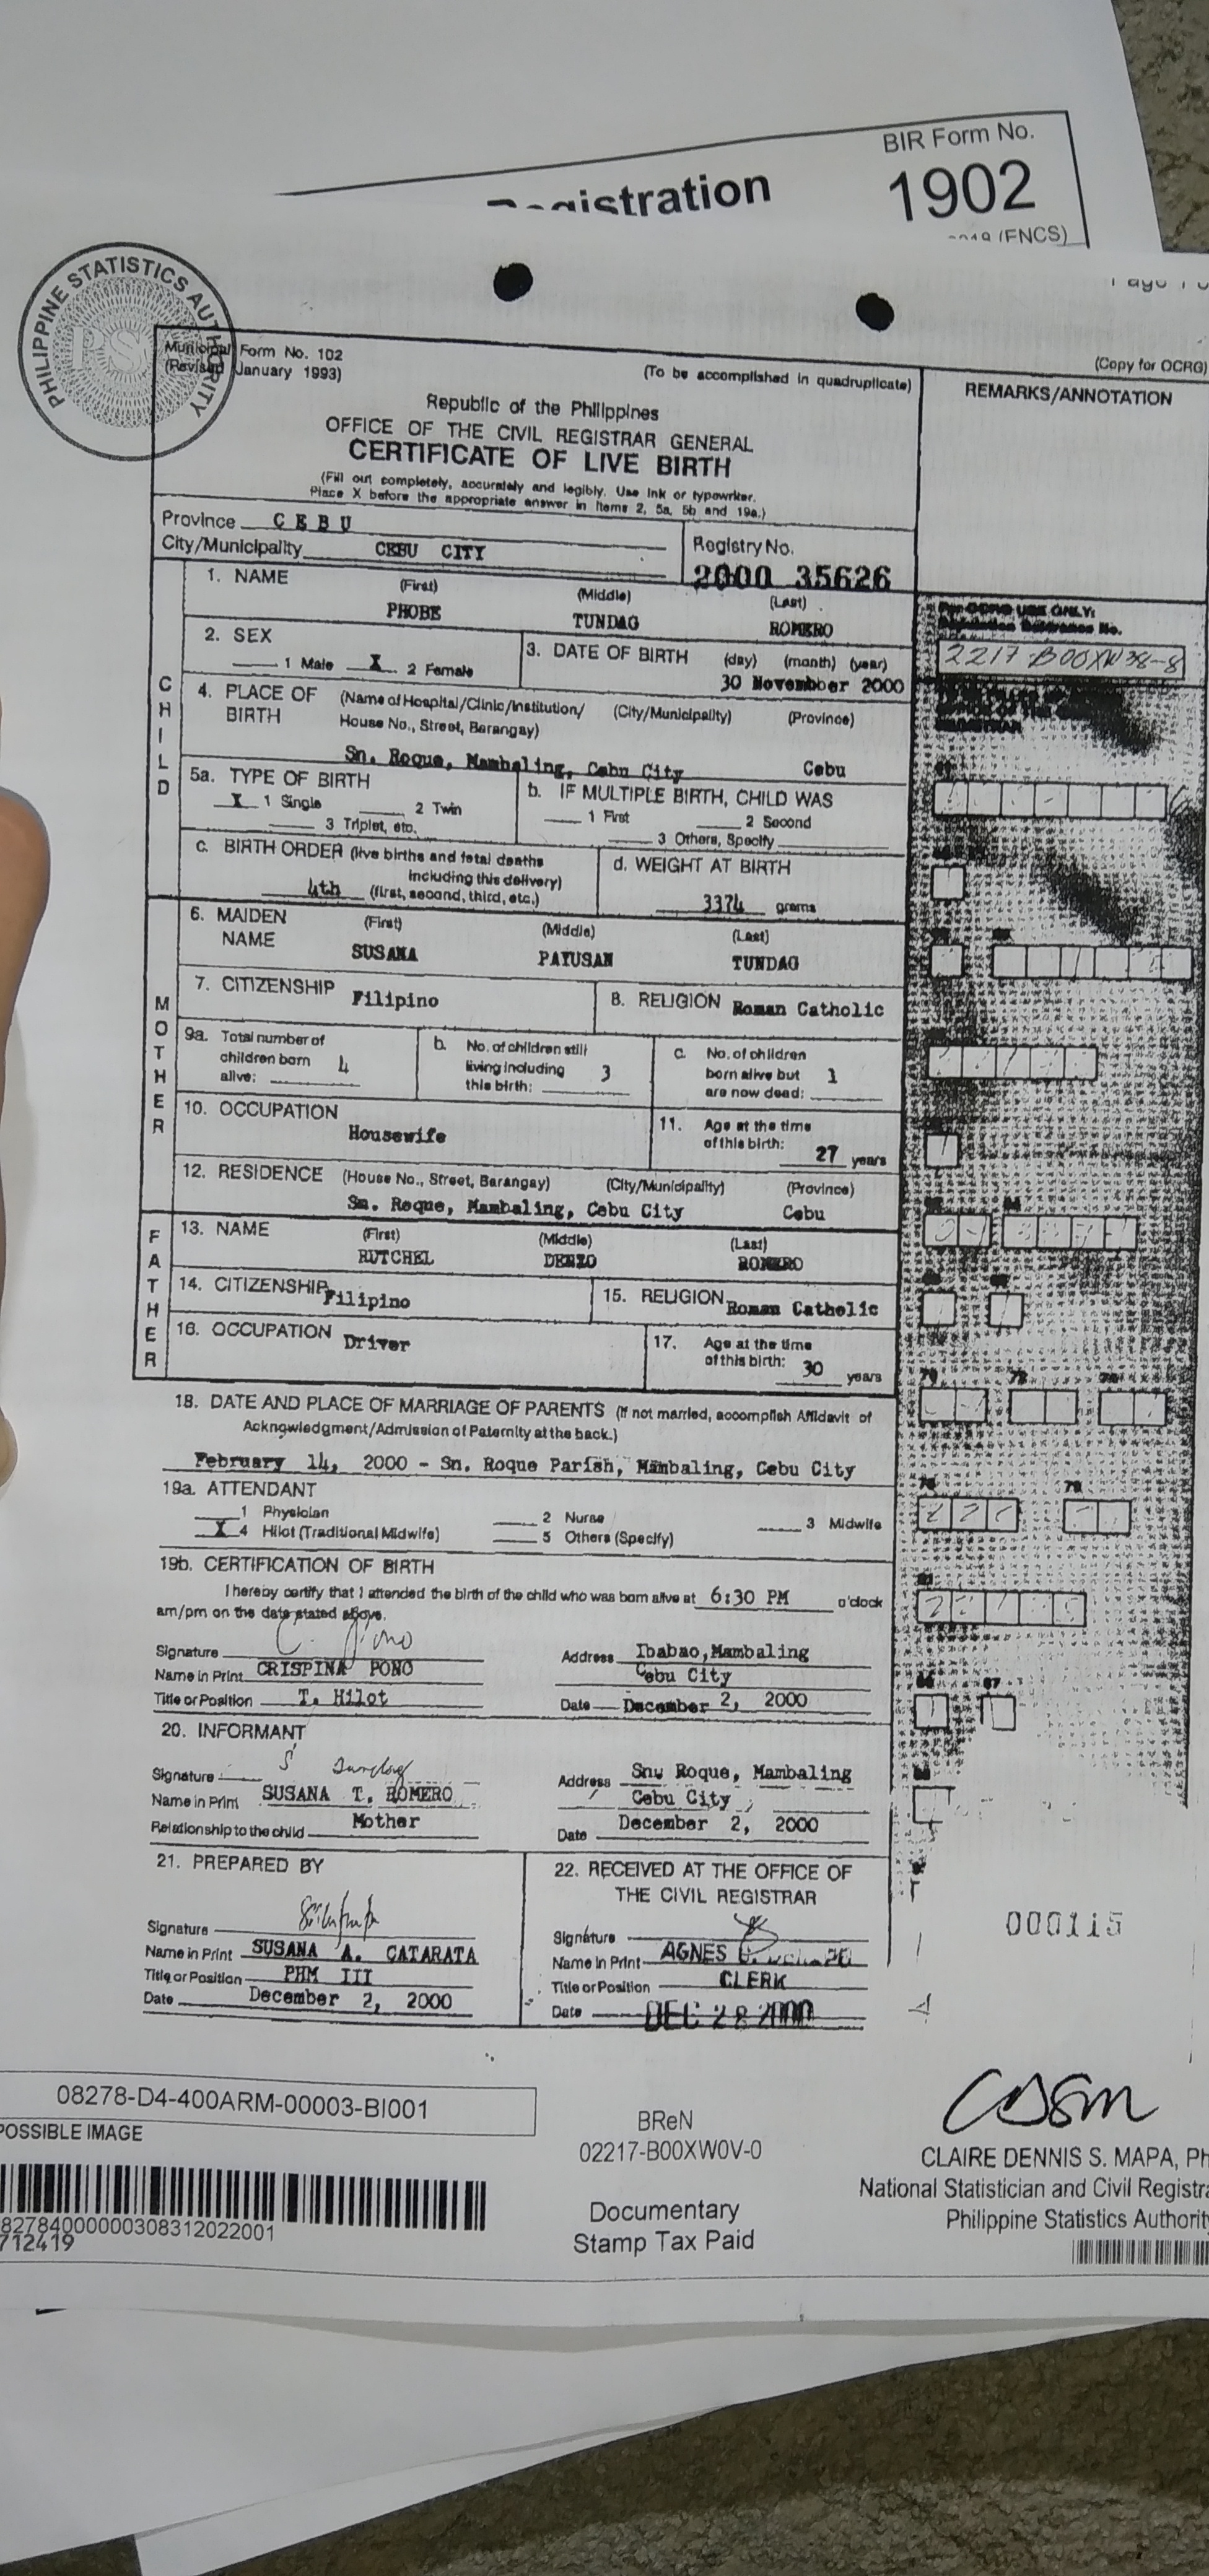 BIR Form No.
1902
Registration
(ENCS)
PHILIPPINE STATISTICS AUTHORITY
Municipal Form No. 102
(Revised January 1993)
(To be accomplished in quadruplicate)
(Copy for OCRG)
REMARKS/ANNOTATION
Republic of the Philippines
OFFICE OF THE CIVIL REGISTRAR GENERAL
CERTIFICATE OF LIVE BIRTH
(Fill out completely, accurately and legibly. Use ink or typewriter.
Place X before the appropriate answer in Items 2, 5a, 5b and 19a.)
Province CEBU
City/Municipality CEBU CITY
Registry No.
2000 35626
CHILD
1. NAME (First) (Middle) (Last)
PHOBE TUNDAG ROMERO
2. SEX
1 Male X 2 Female
3. DATE OF BIRTH (day) (month) (year)
30 November 2000
For OCRG USE ONLY:
Population Reference No.
2217-B00XW38-8
4. PLACE OF BIRTH (Name of Hospital/Clinic/Institution/ House No., Street, Barangay) (City/Municipality) (Province)
Sn. Roque, Mambaling, Cebu City Cebu
5a. TYPE OF BIRTH
X 1 Single 2 Twin
3 Triplet, etc.
b. IF MULTIPLE BIRTH, CHILD WAS
1 First 2 Second
3 Others, Specify
c. BIRTH ORDER (live births and fetal deaths
including this delivery)
4th (first, second, third, etc.)
d. WEIGHT AT BIRTH
3374 grams
MOTHER
6. MAIDEN NAME (First) (Middle) (Last)
SUSANA PATUSAN TUNDAG
7. CITIZENSHIP Filipino
8. RELIGION Roman Catholic
9a. Total number of children born alive: 4
b. No. of children still living including this birth: 3
c. No. of children born alive but are now dead: 1
10. OCCUPATION
Housewife
11. Age at the time of this birth: 27 years
12. RESIDENCE (House No., Street, Barangay) (City/Municipality) (Province)
Sn. Roque, Mambaling, Cebu City Cebu
FATHER
13. NAME (First) (Middle) (Last)
RUTCHEL DENZO ROMERO
14. CITIZENSHIP Filipino
15. RELIGION Roman Catholic
16. OCCUPATION Driver
17. Age at the time of this birth: 30 years
18. DATE AND PLACE OF MARRIAGE OF PARENTS (If not married, accomplish Affidavit of
Acknowledgment/Admission of Paternity at the back.)
February 14, 2000 - Sn. Roque Parish, Mambaling, Cebu City
19a. ATTENDANT
1 Physician 2 Nurse 3 Midwife
X 4 Hilot (Traditional Midwife) 5 Others (Specify)
19b. CERTIFICATION OF BIRTH
I hereby certify that I attended the birth of the child who was born alive at 6:30 PM o'clock
am/pm on the date stated above.
Signature
Name in Print CRISPINA PONO
Title or Position T. Hilot
Address Ibabao,Mambaling
Cebu City
Date December 2, 2000
20. INFORMANT
Signature
Name in Print SUSANA T. ROMERO
Relationship to the child Mother
Address Sn. Roque, Mambaling
Cebu City
Date December 2, 2000
21. PREPARED BY
Signature
Name in Print SUSANA A. CATARATA
Title or Position PHM III
Date December 2, 2000
22. RECEIVED AT THE OFFICE OF
THE CIVIL REGISTRAR
Signature
Name in Print AGNES
Title or Position CLERK
Date DEC 28 2000
000115
08278-D4-400ARM-00003-BI001
POSSIBLE IMAGE
82784000000308312022001
712419
BReN
02217-B00XW0V-0
Documentary
Stamp Tax Paid
CLAIRE DENNIS S. MAPA, Ph
National Statistician and Civil Registra
Philippine Statistics Authority